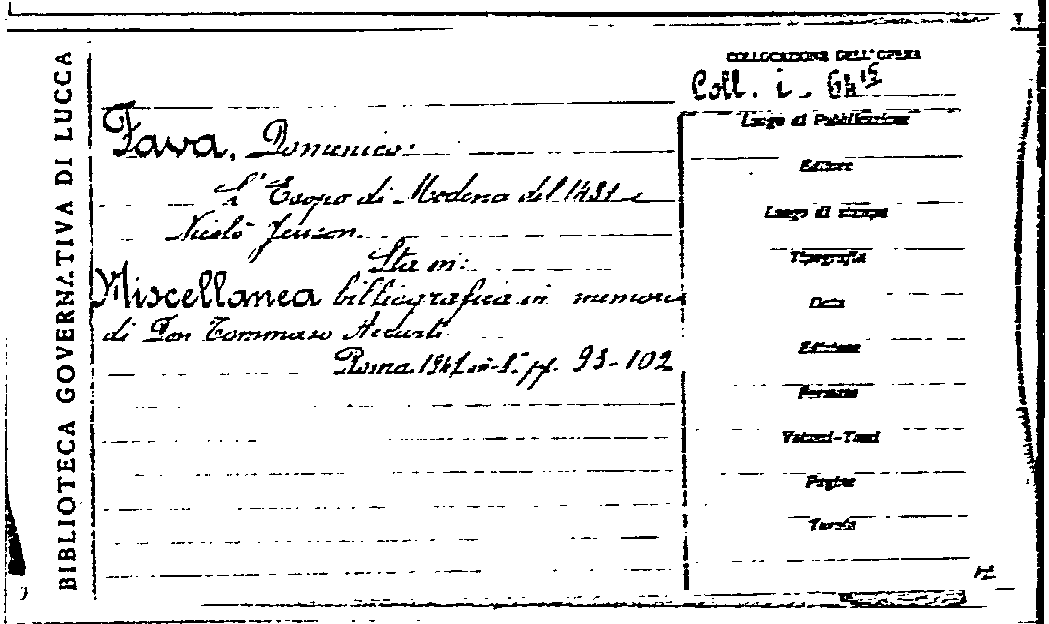 BIBLIOTECA GOVERNATIVA DI LUCCA
COLLOCAZIONE DELL'OPERA
Coll. i - 64 15
Fava, Domenico:
L'Esopo di Modena del 1481 e
Nicolò Jenson.
Sta in:
Miscellanea bibliografica in memoria
di Don Tommaso Accurti
Roma 1947 in-8° pp. 93-102
Luogo di Pubblicazione
Editore
Luogo di stampa
Tipografia
Data
Edizione
Formato
Volumi-Tomi
Pagine
Tavole